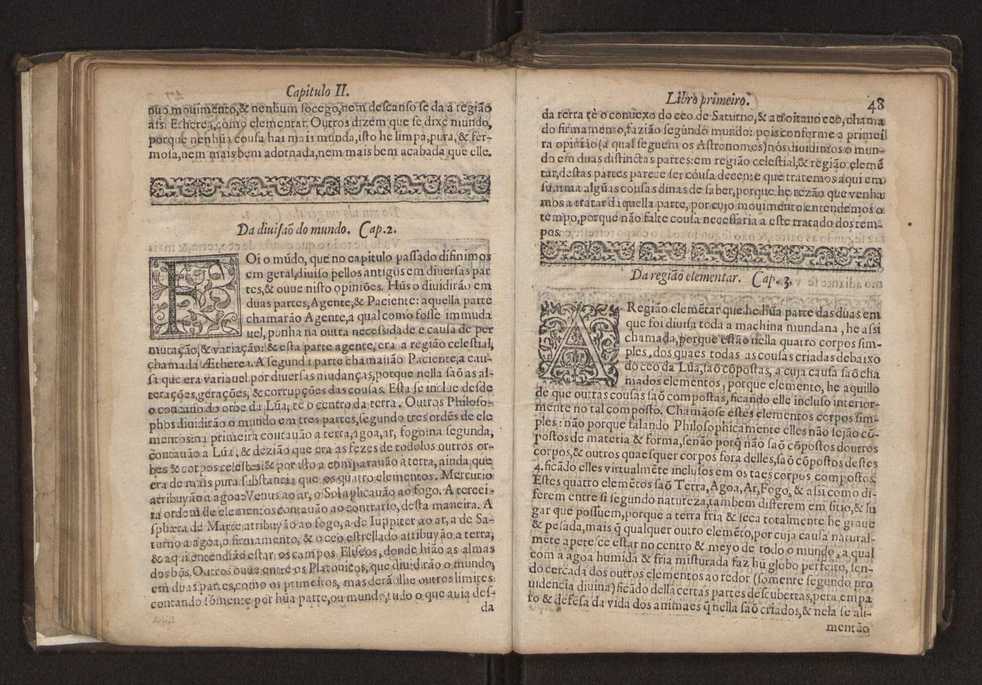 Capitulo II.
nuo mouimento,& nenhum socego,nem descanso se dà à região
assi Etherea,como elementar. Outros dizem que se dixe mundo,
porque nenhũa cousa hai mais munda,isto he limpa,pura,& fer-
mosa,nem mais bem adornada,nem mais bem acabada que elle.
Da diuisaõ do mundo. Cap.2.
FOi o mũdo, que no capitulo passado difinimos
em geral,diuiso pellos antigos em diuersas par
tes,& ouue nisto opiniões. Hũs o diuidirão em
duas partes,Agente,& Paciente: aquella parte
chamarão Agente,a qual como fosse immuda
uel, punha na outra necessidade e causa de per
mutação,& variação: & esta parte agente, era a região celestial,
chamada Ætherea. A segunda parte chamauão Paciente,a cau-
sa que era variauel por diuersas mudanças,porque nella saõ as al-
terações,gerações, & corrupções das cousas. Esta se inclue desde
o concauo do orbe da Lũa, tè o centro da terra. Outros Philoso-
phos diuidirão o mundo em tres partes,segundo tres ordẽs de ele
mentos:na primeira contauão a terra,agoa,ar, fogo:na segunda,
contauão a Lũa, & dezião que era as fezes de todolos outros or-
bes & corpos celestes:& por isto a comparauão a terra, ainda que
era de mais pura substancia que os quatro elementos. Mercurio
atribuyão a agoa:Venus ao ar, o Sol aplicauão ao fogo. A tercei-
ra ordem de elementos contauão ao contrario, desta maneira. A
sphæra de Marte atribuyão ao fogo, a de Iuppiter ao ar, a de Sa-
turno a agoa,o firmamento, & o ceo estrellado attribuyão a terra;
& aqui entendião estar os campos Eliseos, donde hião as almas
dos bõs. Outros ouue entre os Platonicos, que diuidirão o mundo,
em duas partes,como os primeiros, mas derãolhe outros limites:
contando sòmente por hũa parte,ou mundo,tudo o que auia des-
da
Libro primeiro. 48
da terra tè o conuexo do ceo de Saturno, & ao oitauo ceo, chama
do firmamento,fazião segundo mundo: pois conforme a primei
ra opinião (a qual seguem os Astronomos) nòs diuidimos o mun-
do em duas distinctas partes: em região celestial,& região elemẽ
tar,destas partes parece ser cousa decente que tratemos aqui em
summa algũas cousas dinas de saber, porque he rezão que venha
mos a tratar daquella parte, por cujo mouimento entendemos o
tempo,porque não falte cousa necessaria a este tratado dos tem-
pos.
Da região elementar. Cap. 3.
A Região elemẽtar que he hũa parte das duas em
que foi diuisa toda a machina mundana, he assi
chamada,porque estão nella quatro corpos sim-
ples, dos quaes todas as cousas criadas debaixo
do ceo da Lũa,saõ cõpostas, a cuja causa saõ cha
mados elementos, porque elemento, he aquillo
de que outras cousas saõ compostas, ficando elle incluso interior-
mente no tal composto. Chamãose estes elementos corpos sim-
ples: não porque falando Philosophicamente elles não sejão cõ-
postos de materia & forma,senão porq̃ não saõ cõpostos doutros
corpos,& outros quaesquer corpos fora delles,saõ cõpostos destes
4.ficãdo elles virtualmẽte inclusos em os taes corpos compostos.
Estes quatro elemẽtos saõ Terra,Agoa,Ar,Fogo, & assi como di-
ferem entre si segundo natureza,tambem diferem em sitio,& lu
gar que possuem,porque a terra fria & seca totalmente he graue
& pesada,mais q̃ qualquer outro elemẽto,por cuja causa natural-
mẽte apetece estar no centro & meyo de todo o mundo, a qual
com a agoa humida & fria misturada faz hũ globo perfeito, sen-
do cercada dos outros elementos ao redor (somente segundo pro
uidencia diuina) ficãdo della certas partes descubertas,pera empa
ro & defesa da vida dos animaes q̃ nella saõ criados,& nela se ali-
mentão